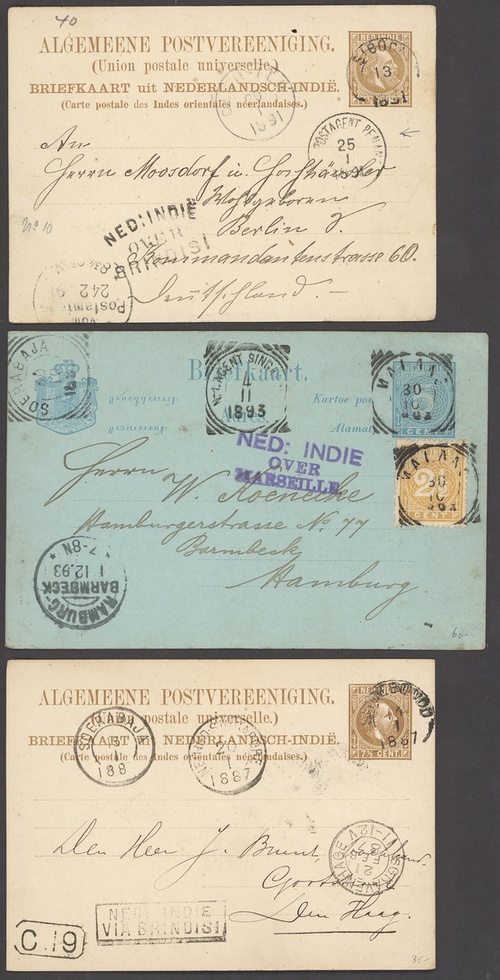 40
ALGEMEENE POSTVEREENIGING.
(Union postale universelle.)
BRIEFKAART uit NEDERLANDSCH-INDIË.
(Carte postale des Indes orientales néerlandaises.)
NED. INDIE
13
1891
1891
POSTAGENT PENANG
25
1
1891
An
Herrn Moosdorf u. Hochhäusler
Wohlgeboren
Berlin
Kommandantenstrasse 60.
Deutschland.
No 10
NED: INDIE
OVER
BRINDISI
24 2 91
Postamt
Briefkaart.
Adres.
Kartoe pos
Alamat
SOERABAJA
NED. AGENT SING
4
11
1893
MALANG
30
10
CENT
MALANG
30
10
2½
CENT
NED: INDIE
OVER
MARSEILLE
Herrn
W. Koenecke
Hamburgerstrasse No 77
Barmbeck
Hamburg.
HAMBURG-
BARMBECK
1 12.93
7-8N
60-
ALGEMEENE POSTVEREENIGING.
(Union postale universelle.)
BRIEFKAART uit NEDERLANDSCH-INDIË.
(Carte postale des Indes orientales néerlandaises.)
NED. INDIE
7½ CENT.
SOERABAJA
188
1887
1887
'S GRAVENHAGE
11-12V
Den Heer J.
Den Haag.
NED. INDIE
VIA BRINDISI
C. 19
35-